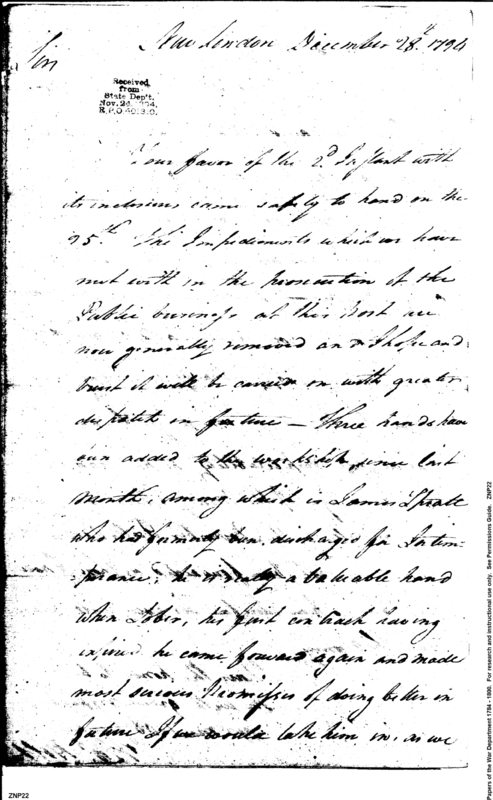 New London December 28th. 1794
Sir
Received
from
State Dep't.
Nov. 24, 1894,
R.P.O. 401310.
Your favor of the 2d Instant with
its inclosures came safely to hand on the
25th. The Impediments which we have
met with in the prosecution of the
Public business at this Post are
now generally removed and I hope and
trust it will be carried on with greater
dispatch in future — Three hands have
been added to the workshop since last
Month, among which is James Spratt
who had formerly been discharged for Intem-
-perance; he is really a valuable hand
when Sober, his first contract having
expired he came forward again and made
most serious Promisses of doing better in
future If we would take him in, as we
ZNP22
Papers of the War Department 1784 - 1800. For research and instructional use only. See Permissions Guide. ZNP22